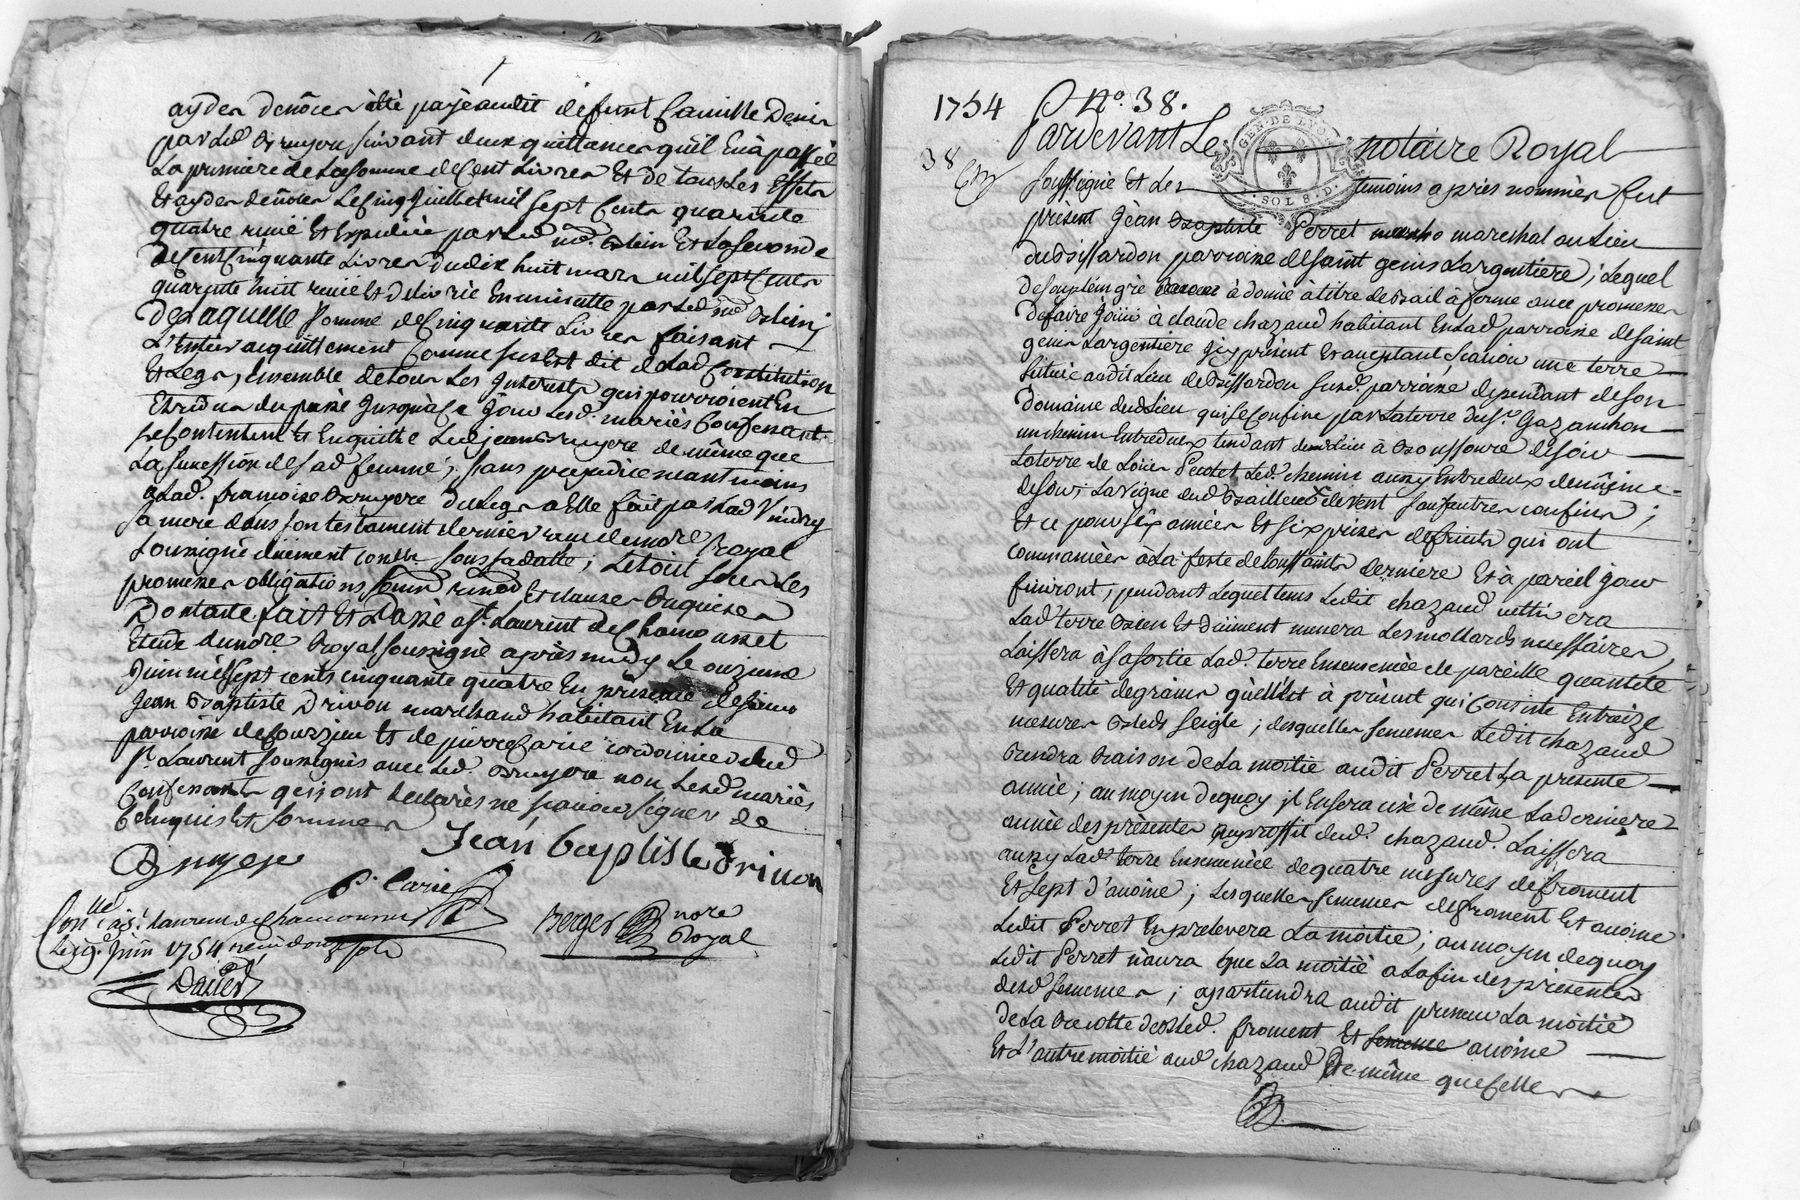 ayder denôcer été payé audit defunt Camille Denir
par led Bruyere suivant deux quittances qu'il En à passéé
La premiere de La somme de Cent Livres Et de tous Les Effets
Et ayder denôces Le cinq Juillet mil sept Cents quarante
quatre reçue Et Expediée par Led me. Et La Seconde
de Cent Cinquante Livres du dix huit mars mil sept Cents
quarante huit reçue Et Delivrée En minutte par Led me
De Laquelle somme de Cinquante Livres faisant
L'Entier acquittement Comme sus Est dit de Lad Constitution
Et Legs, ensemble de tous Les Interests qui pourroient En
Etre dus du passé Jusqu'à Ce Jour Lesd. mariés Confessants
se Contentent Et En quitte Led jean Bruyere de même que
La succession de sad femme; sans prejudice neantmoins
a Lad. francoise Bruyere du Legs a Elle fait par Lad Vindry
sa mere dans son testament dernier reçu dendre Royal
soussigné düement contlé. sous sa datte; Le tout sous Les
promesses obligations soums renond Et clauses Requises
Dont acte fait Et Passé a St. Laurent de Chamousset
Etude dundre. Royal soussigné après midy Le onzieme
Juin mil sept cents cinquante quatre En présence de sieur
Jean Baptiste Drivon marchand habitant En La
parroisse de Courzieu Et de pierre Carie cordonnier dud
St. Laurent soussignés avec Led. Bruyere non Lesd mariés
Confessants qui ont declarés ne scavoir signer de
Ce Enquis Et sommés
Bruyere Jean baptiste drivon
P. Carie
Conllé a St. Laurent de Chamousset
Le 19. Juin 1754 reçu douze sols
Berger nore Royal
Dasier
1754 No. 38.
38
Pardevant Le notaire Royal
GEN. DE LYON
SOL 8. D.
soussigné Et Les temoins après nommés fut
présent Jean Baptiste Perret mareshal au Lieu
du Bissardon parroisse de saint genis Largentiere; Lequel
de son plein gré à donné à titre de Bail à ferme avec promesse
De faire Joüir à claude chazaud habitant En Lad. parroisse de saint
genis Largentiere Icy présent Et acceptant scavoir une terre
située audit Lieu de Bissardon susd. parroisse dependant de son
Domaine dud Lieu qui se Confine par La terre du sr. Gazanchon
un chemin Entredeux tendant dud Lieu à de soir
La terre de Loüis Led. chemin aussy Entredeux
de La vigne dud de vent sauf autres confins;
Et ce pour six années Et six prises de fruits qui ont
commancées a La feste de toussaints derniere Et à pareil jour
finiront; pendant Lequel tems Ledit chazaud cultivera
Lad terre Bien Et düement menera Les mollards necessaires,
Laissera à sa sortie Lad. terre Ensemencée de pareille quantité
Et qualité de graines qu'elle Est à présent qui Consiste En traize
mesures Bleds seigle; desquelles semences Ledit chazaud
rendra Raison de La moitié audit Perret La présente
année; au moyen de quoy il En sera usé de même La derniere
année des présentes au proffit dud. chazaud. Laissera
aussy Lad terre Ensemencée de quatre mesures de froment
Et sept d'avoine; Lesquelles semences de froment Et avoine
Ledit Perret En prelevera La moitié; au moyen de quoy
Ledit Perret n'aura que La moitié a La fin des présentes
desd semences; apartiendra audit preneur La moitié
de La Recolte desd. froment Et semence avoine
Et L'autre moitié aud chazaud De même que Celles